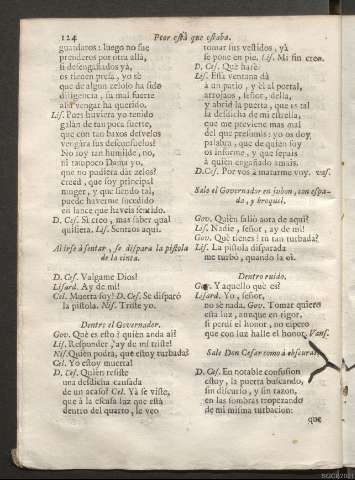 124 Peor està que estaba.
guardaros: luego no fue
prenderos por otra allà,
si desengañados yà,
os tienen presa, yo sè
que de algun zeloso ha sido
diligencia, su mal fuerte
assi vengar ha querido.
Lis. Pues huviera yo tenido
galàn de tan poca suerte,
que con tan baxos desvelos
vengàra sus desconsuelos?
No soy tan humilde, no,
ni tampoco Dama yo,
que no pudiera dàr zelos?
creed, que soy principal
muger, y que siendo tal,
puede haverme sucedido
en lance que haveis
D. Ces. Sì creo, mas saber qual
quisiera. Lis. Sentaos aqui.
Al irse à sentar, se dispara la pistola
de la cinta.
D. Ces. Valgame Dios!
Lisard. Ay de mi!
Cel. Muerta soy! D. Ces. Se disparò
la pistola. Nis. Triste yo.
Dentro el Governador.
Gov. Què es esto? quien anda aì?
Lis. Responder, ay de mi triste!
Nis. Quien podrà, que estoy turbada?
Cel. Yo estoy muerta!
D. Ces. Quien resiste
una desdicha causada
de un acaso? Cel. Yà se viste,
que à la escasa luz que està
dentro del quarto, le veo
tomar sus vestidos, yà
se pone en pie. Lis. Mi fin creo.
D. Ces. Què harè?
Lis. Esta ventana dà
à un patio, y èl al portal,
arrojaos, señor, della,
y abrid la puerta, que es tal
la desdicha de mi estrella,
que me previene mas mal
del que presumis: yo os doy
palabra, que de quien soy
os informe, y que sepais
à quien engañado amais.
D. Ces. Por vos à matarme voy. vas.
Sale el Governador en jubon, con espa-
da, y broquel.
Gov. Quien saliò aora de aqui?
Lis. Nadie, señor, ay de mi!
Gov. Què tienes? tù tan turbada?
Lis. La pistola disparada
me turbò, quando la oì.
Dentro ruido.
Gov. Y aquello què es?
Lisard. Yo, señor,
no sè nada. Gov. Tomar quiero
esta luz, aunque en rigor,
si perdì el honor, no espero
que con luz halle el honor. Vans.
Sale Don Cesar como à obscuras.
D. Ces. En notable confusion
estoy, la puerta buscando,
sin discurso, y sin razon,
en las sombras tropezando
de mi misma turbacion:
que